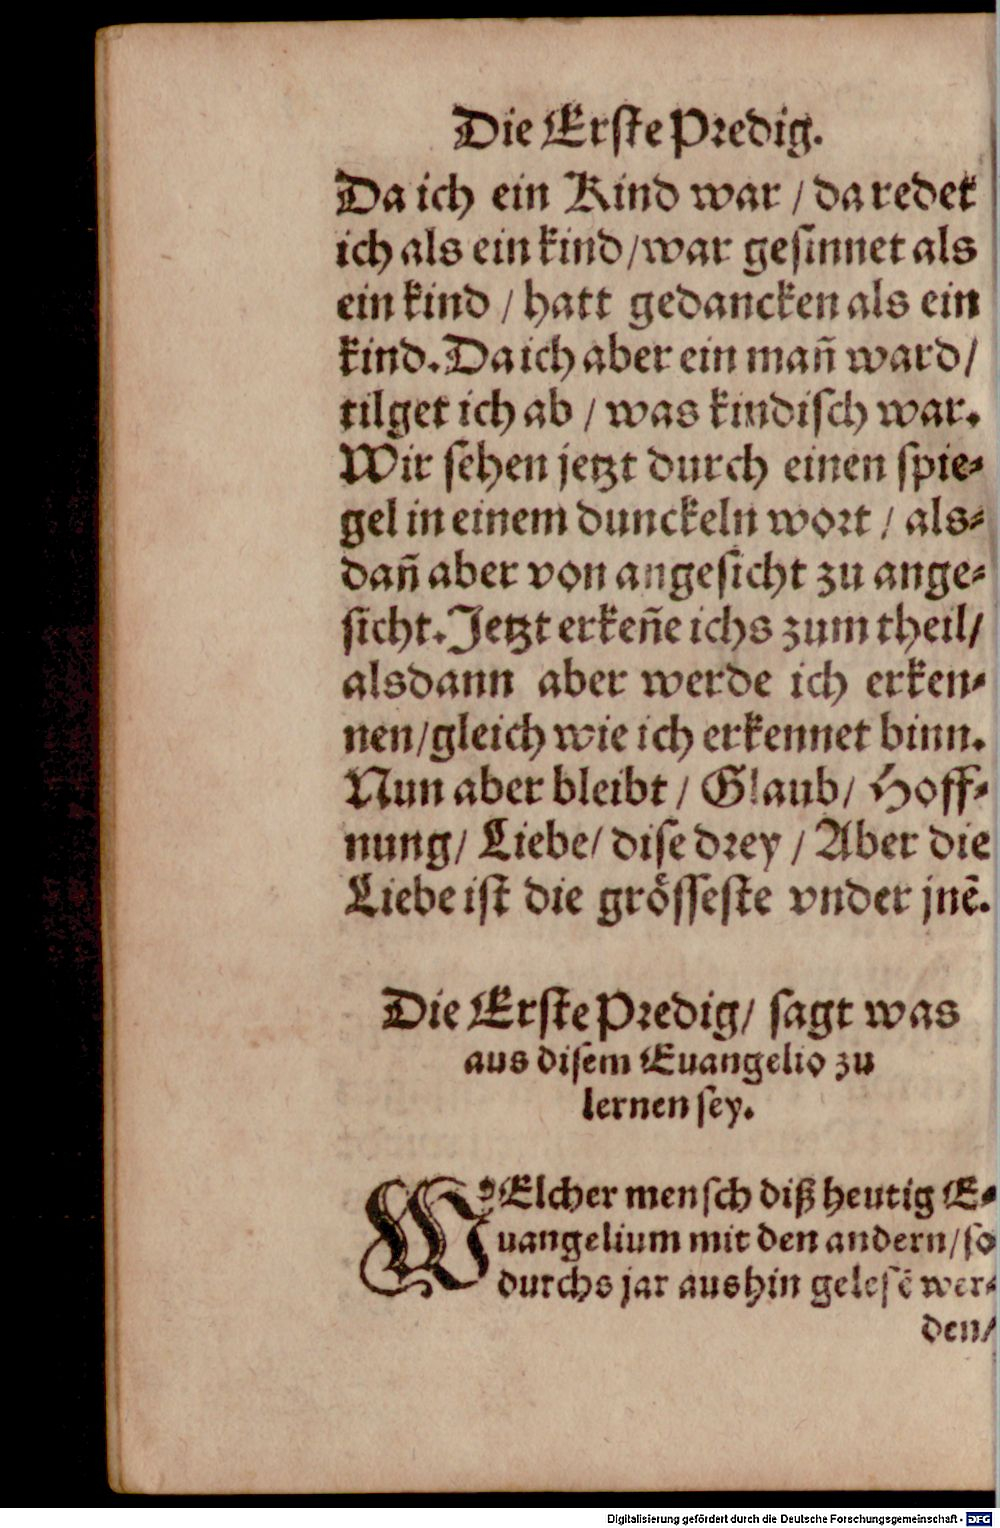 Die Erſte Predig.
Da ich ein Kind war / da redet
ich als ein kind/war geſinnet als
ein kind / hatt gedancken als ein
kind. Da ich aber ein mañ ward/
tilget ich ab / was kindiſch war.
Wir ſehen jetzt durch einen ſpie⸗
gel in einem dunckeln wort / als⸗
dañ aber von angeſicht zu ange⸗
ſicht. Jetzt erkeñe ichs zum theil/
alsdann aber werde ich erken⸗
nen/gleich wie ich erkennet binn.
Nun aber bleibt / Glaub/ Hoff⸗
nung/ Liebe/ diſe drey / Aber die
Liebe iſt die gröſſeſte vnder jnē.
Die Erſte Predig/ ſagt was
aus diſem Euangelio zu
lernen ſey.
WElcher menſch diß heutig E⸗
uangelium mit den andern/ſo
durchs jar aushin geleſē wer⸗
den/
Digitalisierung gefördert durch die Deutsche Forschungsgemeinschaft - DFG